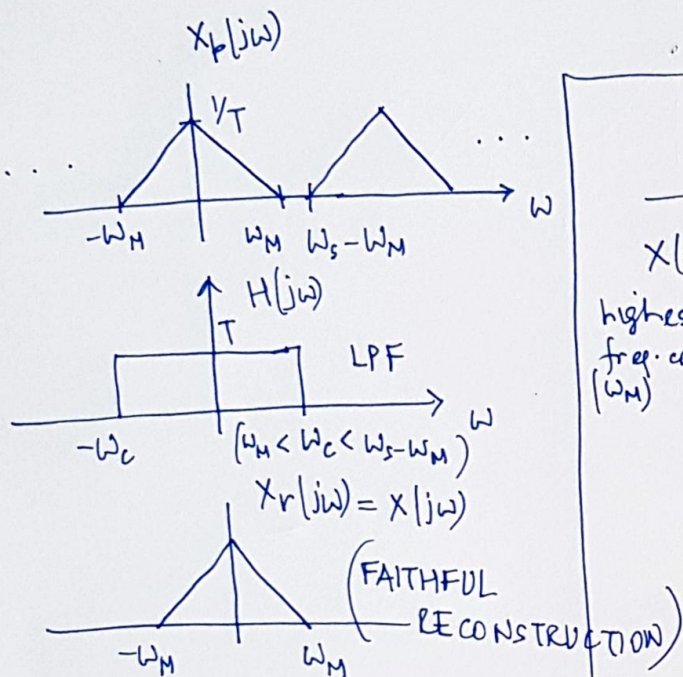 Xp(jω)
1/T
. . . .
. . . .
-ωM ωM ωs-ωM ω
H(jω)
T
LPF
-ωc (ωM < ωc < ωs-ωM) ω
Xr(jω) = X(jω)
(FAITHFUL
RECONSTRUCTION)
-ωM ωM
X(
highes
freq. c
(ωM)